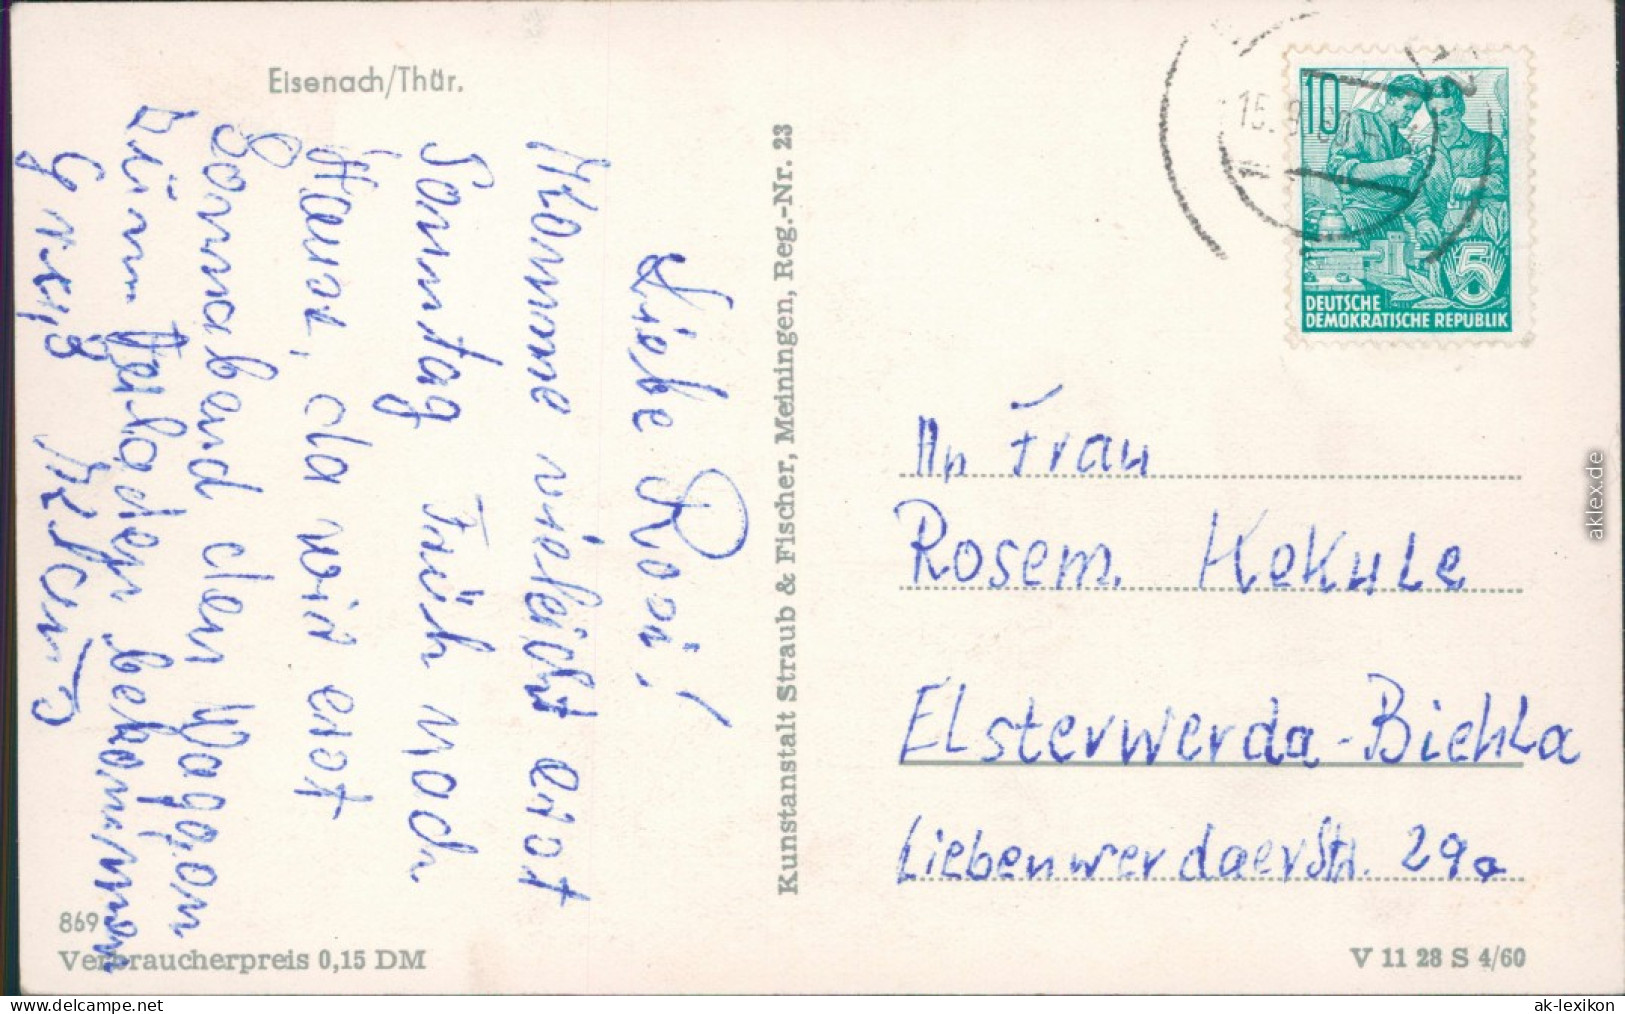 Eisenach/Thür.
Liebe Rosi!
Komme vieleicht erst
Sonntag Früh nach
Hause, da wir erst
Sonnabend den Waggon
zum Verladen bekommen
Gruß Klaus
Kunstanstalt Straub & Fischer, Meiningen, Reg.-Nr. 23
869
Verbraucherpreis 0,15 DM
15.9.60
10
5
DEUTSCHE
DEMOKRATISCHE REPUBLIK
An Frau
Rosem. Kekule
Elsterwerda-Biehla
Liebenwerdaerstr. 29a
V 11 28 S 4/60
aklex.de
www.delcampe.net
ak-lexikon